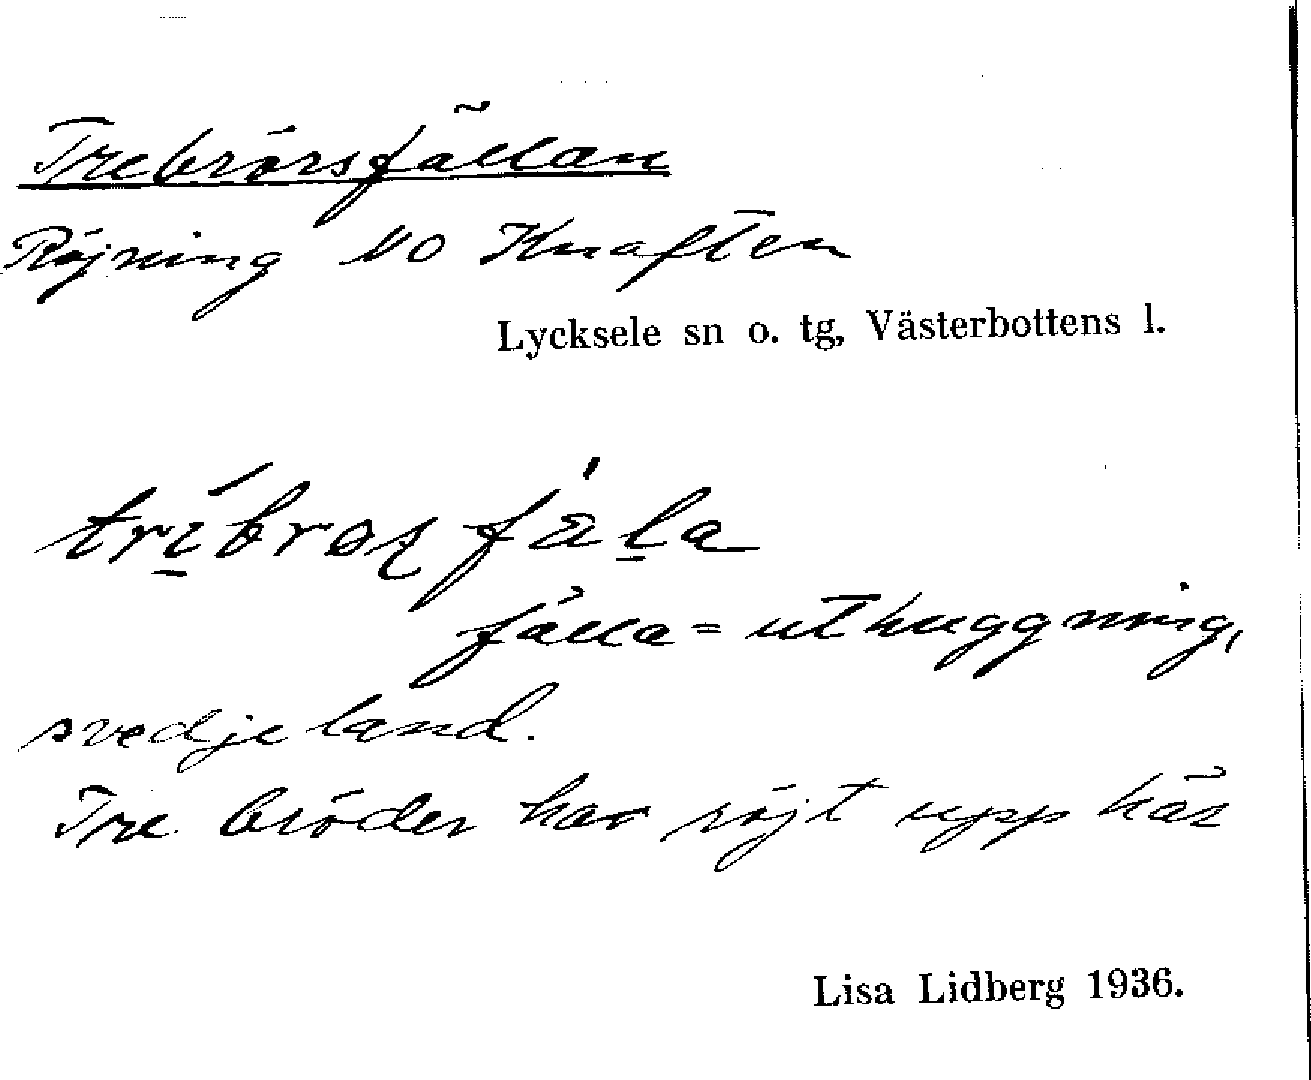 Trebrörsfällan
Röjning NO Knaften
Lycksele sn o. tg, Västerbottens l.
fälla = uthuggning,
svedjeland.
Tre bröder har röjt upp här
Lisa Lidberg 1936.